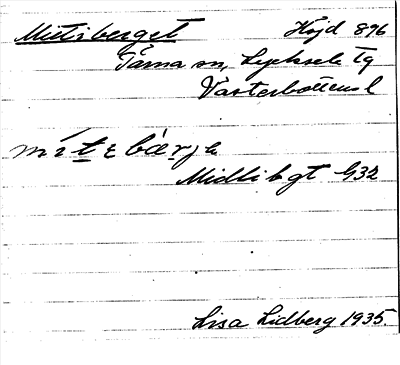 Mittiberget Höjd 896
Tärna sn, Lycksele tg
Västerbottens l
mìtɛbærjɛ
Midlibgt G32
Lisa Lidberg 1935.